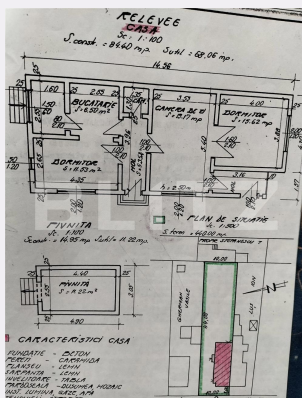 RELEVEE
CASA
Sc: 1:100
S.constr. = 84,40 mp. Sutil = 68,06 mp.
14.96
1.60
2.65
3.53
4.00
BUCATARIE
S=6.50 m²
CAMERA DE ZI
S=19.17 mp
DORMITOR
S=15.62 mp
DORMITOR
S=11.53 m²
4.35
3.16
5.40
h = 2.50 m
HOL
HOL
PIVNITA
Sc: 1:100
Sconst. = 14.95 mp. Sutil = 11.22 mp.
PLAN DE SITUATIE
Sc 1:500
S.teren = 440.00 mp.
4.40
PIVNITA
S = 11.22 m²
2.55
3.05
4.90
10.00
44.00
GHERMAN
VASILE
LOT
ION
10.00
CARACTERISTICI CASA
FUNDATIE - BETON
PERETI - CARAMIDA
PLANSEU - LEMN
SARPANTA - LEMN
INVELITOARE - TABLA
PARDOSEALA - DUSUMEA, MOZAIC
INST. LUMINA, GAZE, APA